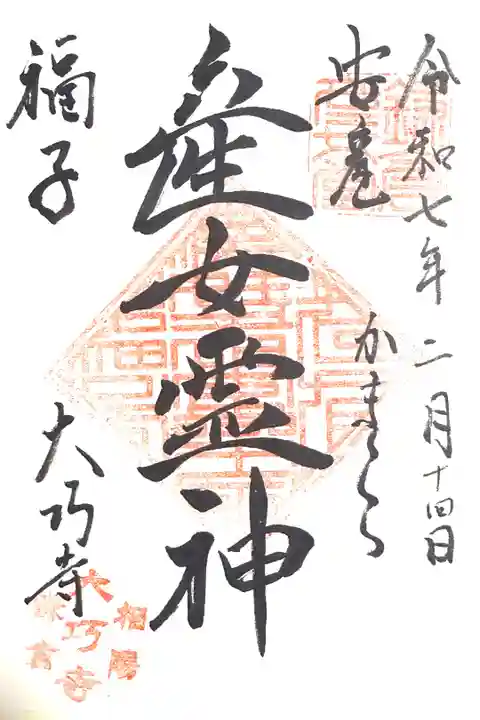 令和七年二月十四日
安産
かまくら
産女霊神
福子
大巧寺
相陽
大巧寺